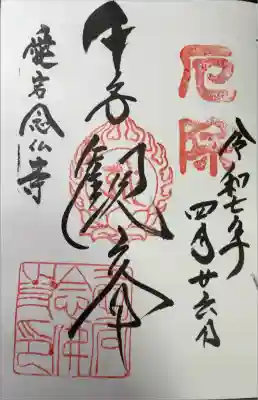 厄除
令和七年四月廿六日
千手観音
愛宕念仏寺